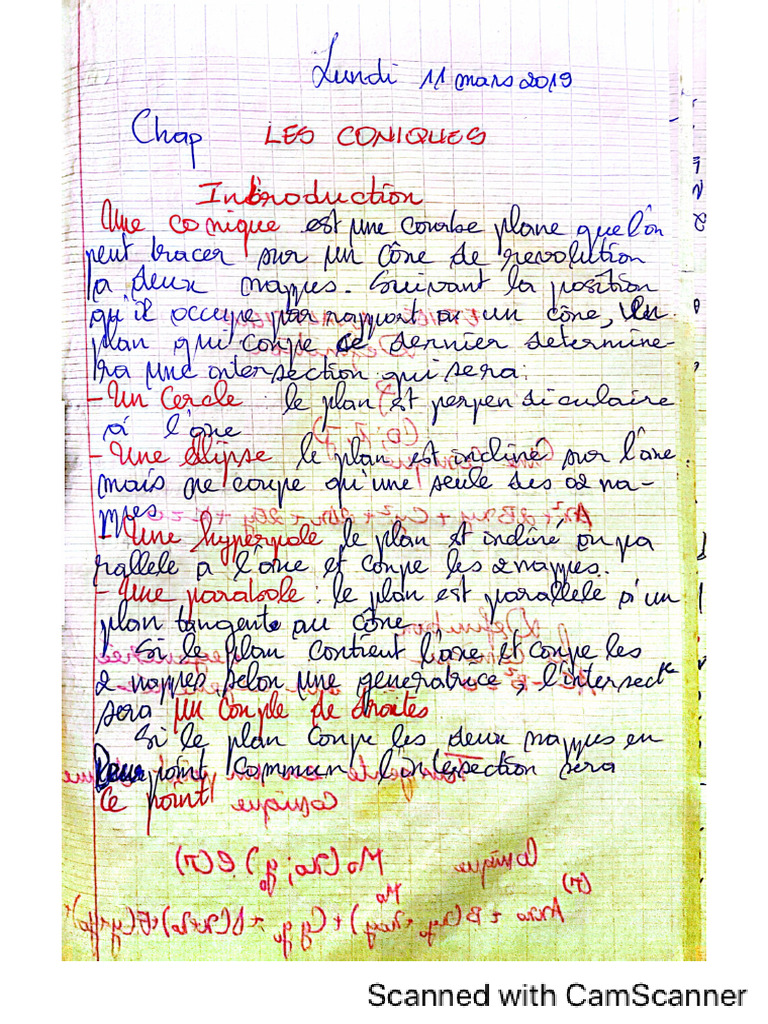 Lundi 11 mars 2019
Chap LES CONIQUES
Introduction
Une conique est une courbe plane que l'on
peut tracer sur un cône de revolution
a deux nappes. Suivant la position
qu'il occupe par rapport a un cône, Un
plan qui coupe ce dernier détermine-
ra une intersection qui sera:
- Un Cercle : le plan est perpendiculaire
à l'axe
- Une ellipse le plan est incliné sur l'axe
mais ne coupe qu'une seule des 02 na-
ppes
- Une hyperpole le plan est incliné ou pa
rallele a l'axe et coupe les 2 nappes.
- Une parabole : le plan est parallele à un
plan tangente au cône
Si le plan contient l'axe et coupe les
2 nappes selon une generatrice, l'intersect°
sera un couple de droites
Si le plan coupe les deux nappes en
point commun l'intersection sera
ce point
Scanned with CamScanner